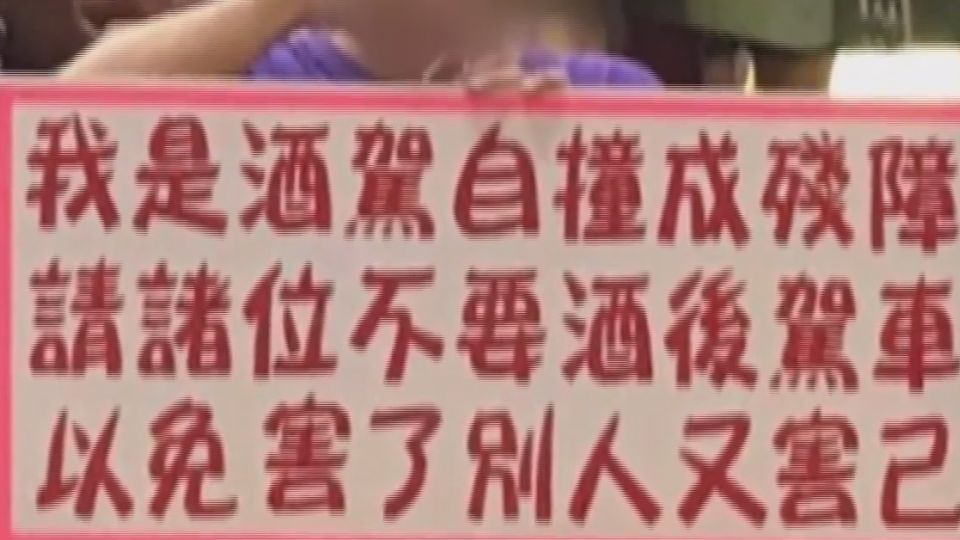 我是酒駕自撞成殘障
請諸位不要酒後駕車
以免害了別人又害己